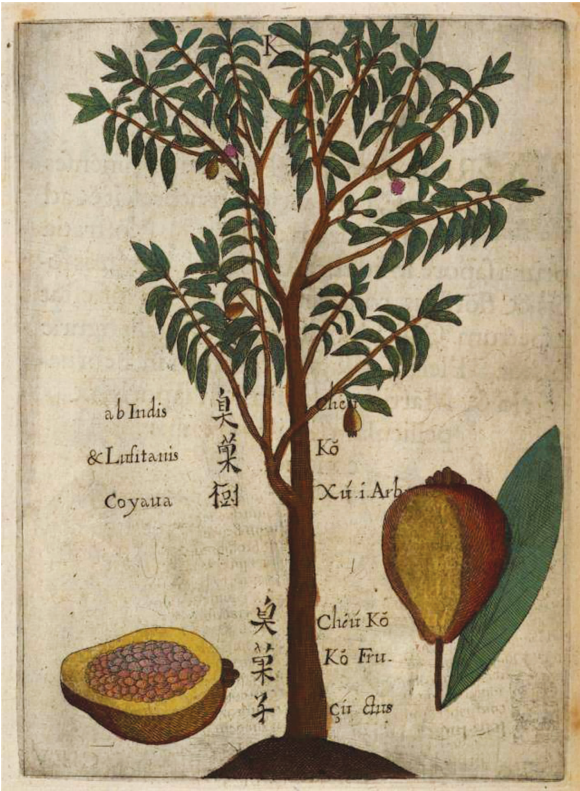 K
ab Indis
& Luſitanis
Coyaua
臭菓樹
Kǒ
Xú .i. Arb
臭菓子
Chéú Kǒ
Kǒ Fru-
çú ctus